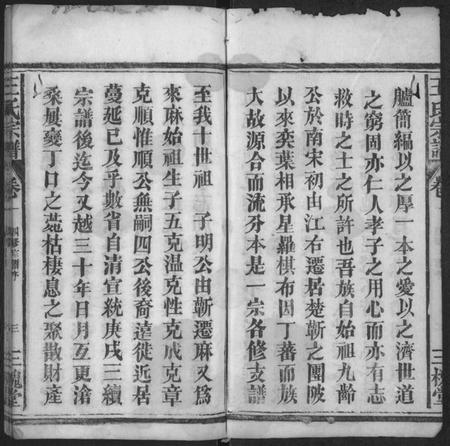 臚簡編以之厚一本之愛以之濟世道
之窮固亦仁人孝子之用心而亦有志
救時之士之所許也吾族自始祖九齡
公於南宋初由江右遷居楚蘄之團陂
以來奕葉相承星羅棋布因丁蕃而族
大故源合而流分本是一宗各修支譜
至我十世祖 子明公由蘄遷麻又爲
來麻始祖生子五克温克性克成克章
克順惟順公無嗣四公後裔遠徙近居
蔓延已及乎數省自清宣統庚戌三續
宗譜後迄今又越三十年日月互更滄
桑屢變丁口之菀枯棲息之聚散財產
王氏宗譜
卷
三
三槐堂